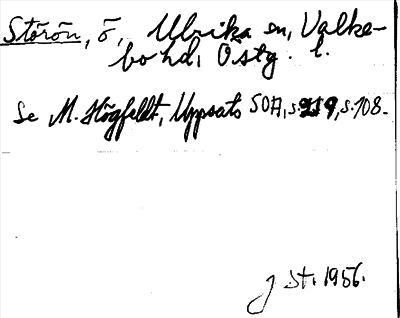 Storön, ö, Ulrika sn, Valke-
bo hd, Östg. l.
Se M. Högfeldt, Uppsats SOA, s. 219, s. 108.
J St. 1956.